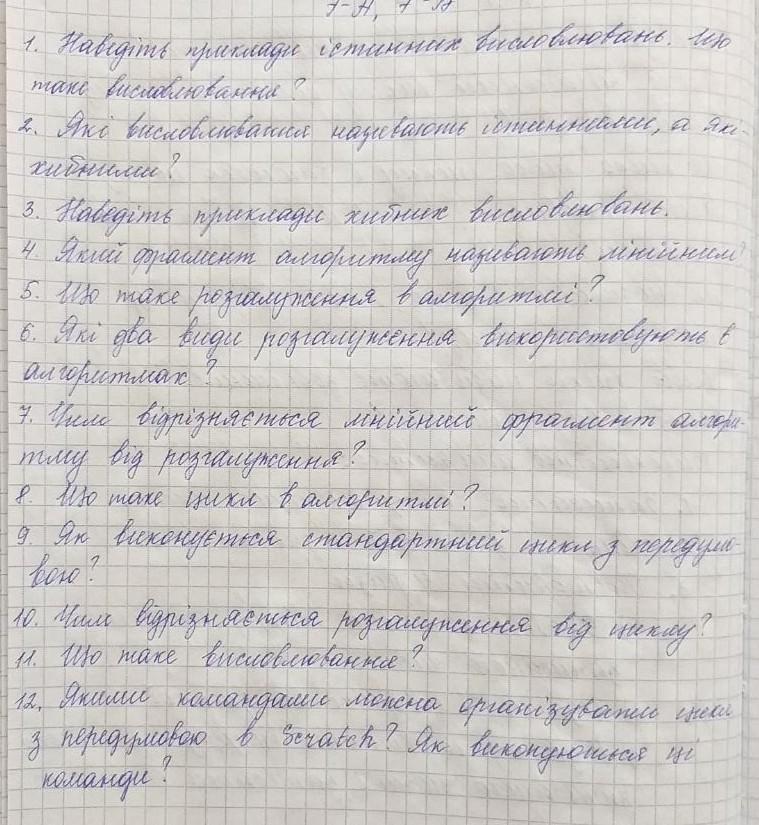 7-А, 7-
1. Наведіть приклади істинних висловлювань. Що
таке висловлювання?
2. Які висловлювання називають істинними, а які-
хибними?
3. Наведіть приклади хибних висловлювань.
4. Який фрагмент алгоритму називають лінійним?
5. Що таке розгалуження в алгоритмі?
6. Які два види розгалуження використовують в
алгоритмах?
7. Чим відрізняється лінійний фрагмент алгори-
тму від розгалуження?
8. Що таке цикл в алгоритмі?
9. Як виконується стандартний цикл з передумо-
вою?
10. Чим відрізняється розгалуження від циклу?
11. Що таке висловлювання?
12. Якими командами можна організувати цикл
з передумовою в Scratch? Як виконуються ці
команди?